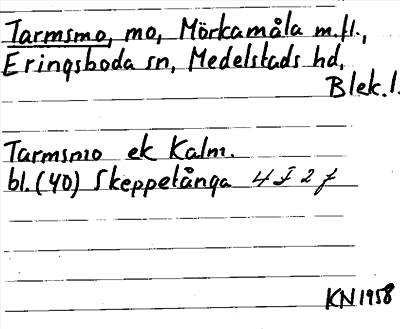 Tarmsmo, mo, Mörkamåla m.fl.,
Eringsboda sn, Medelstads hd,
Blek.l.
Tarmsmo ek Kalm.
bl. (40) Skeppelånga 4 F 2 f
KN 1958